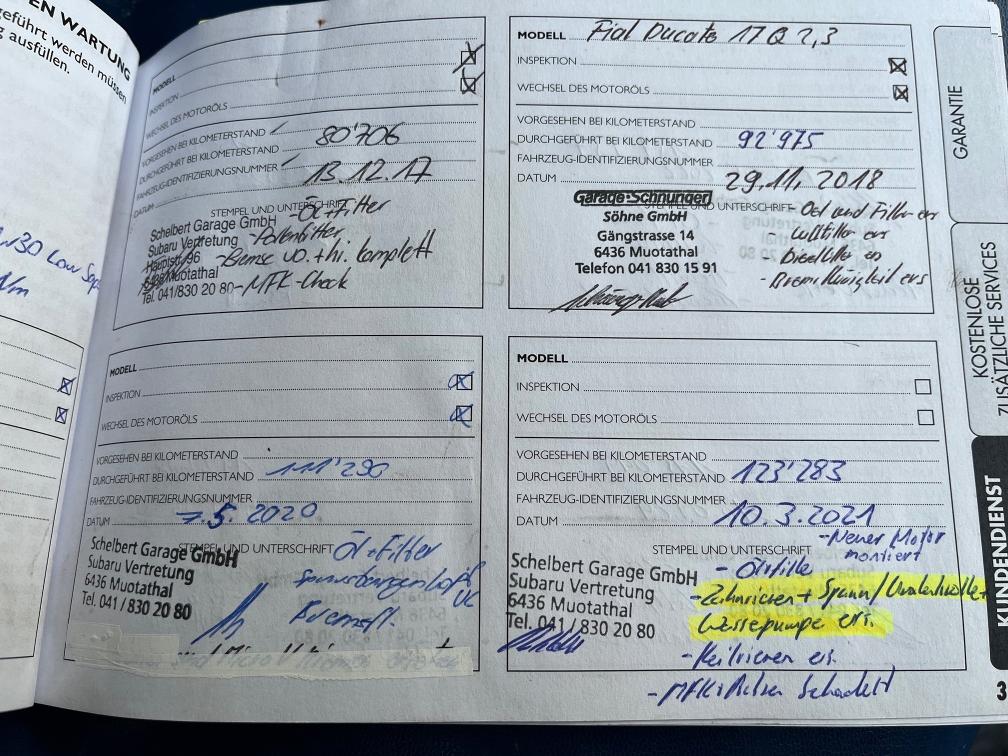 EN WARTUNG
geführt werden müssen
g ausfüllen.
.130 Low
Nm
MODELL
INSPEKTION
WECHSEL DES MOTORÖLS
VORGESEHEN BEI KILOMETERSTAND
DURCHGEFÜHRT BEI KILOMETERSTAND 80'706
FAHRZEUG-IDENTIFIZIERUNGSNUMMER
DATUM 13.12.17
STEMPEL UND UNTERSCHRIFT
- Öl+Filter
- Pollenfilter
- Bemse vo. + hi. komplett
- MFK-Check
Schelbert Garage GmbH
Subaru Vertretung
Hauptstr. 96
6436 Muotathal
Tel. 041/830 20 80
MODELL Fiat Ducato 17Q 2,3
INSPEKTION
WECHSEL DES MOTORÖLS
VORGESEHEN BEI KILOMETERSTAND
DURCHGEFÜHRT BEI KILOMETERSTAND 92'975
FAHRZEUG-IDENTIFIZIERUNGSNUMMER
DATUM 29.11.2018
STEMPEL UND UNTERSCHRIFT
Garage-Schnüriger
Söhne GmbH
Gängstrasse 14
6436 Muotathal
Telefon 041 830 15 91
- Oel und Filter er
- Luftfilter er
- Dieselfilter er
- Bremsflüssigkeit ers
MODELL
INSPEKTION
WECHSEL DES MOTORÖLS
VORGESEHEN BEI KILOMETERSTAND
DURCHGEFÜHRT BEI KILOMETERSTAND 111'290
FAHRZEUG-IDENTIFIZIERUNGSNUMMER
DATUM 7.5.2020
STEMPEL UND UNTERSCHRIFT
Öl+Filter
Bremsfl.
Schelbert Garage GmbH
Subaru Vertretung
6436 Muotathal
Tel. 041 / 830 20 80
MODELL
INSPEKTION
WECHSEL DES MOTORÖLS
VORGESEHEN BEI KILOMETERSTAND
DURCHGEFÜHRT BEI KILOMETERSTAND 123'283
FAHRZEUG-IDENTIFIZIERUNGSNUMMER
DATUM 10.3.2021
STEMPEL UND UNTERSCHRIFT
- Neuer Motor
montiert
- Ölfilter
- Zahnriemen + Spann/Umlenkrolle
Wasserpumpe ers.
- Keilriemen ers.
- MFK
Schelbert Garage GmbH
Subaru Vertretung
6436 Muotathal
Tel. 041 / 830 20 80
GARANTIE
KOSTENLOSE
ZUSÄTZLICHE SERVICES
KUNDENDIENST
3